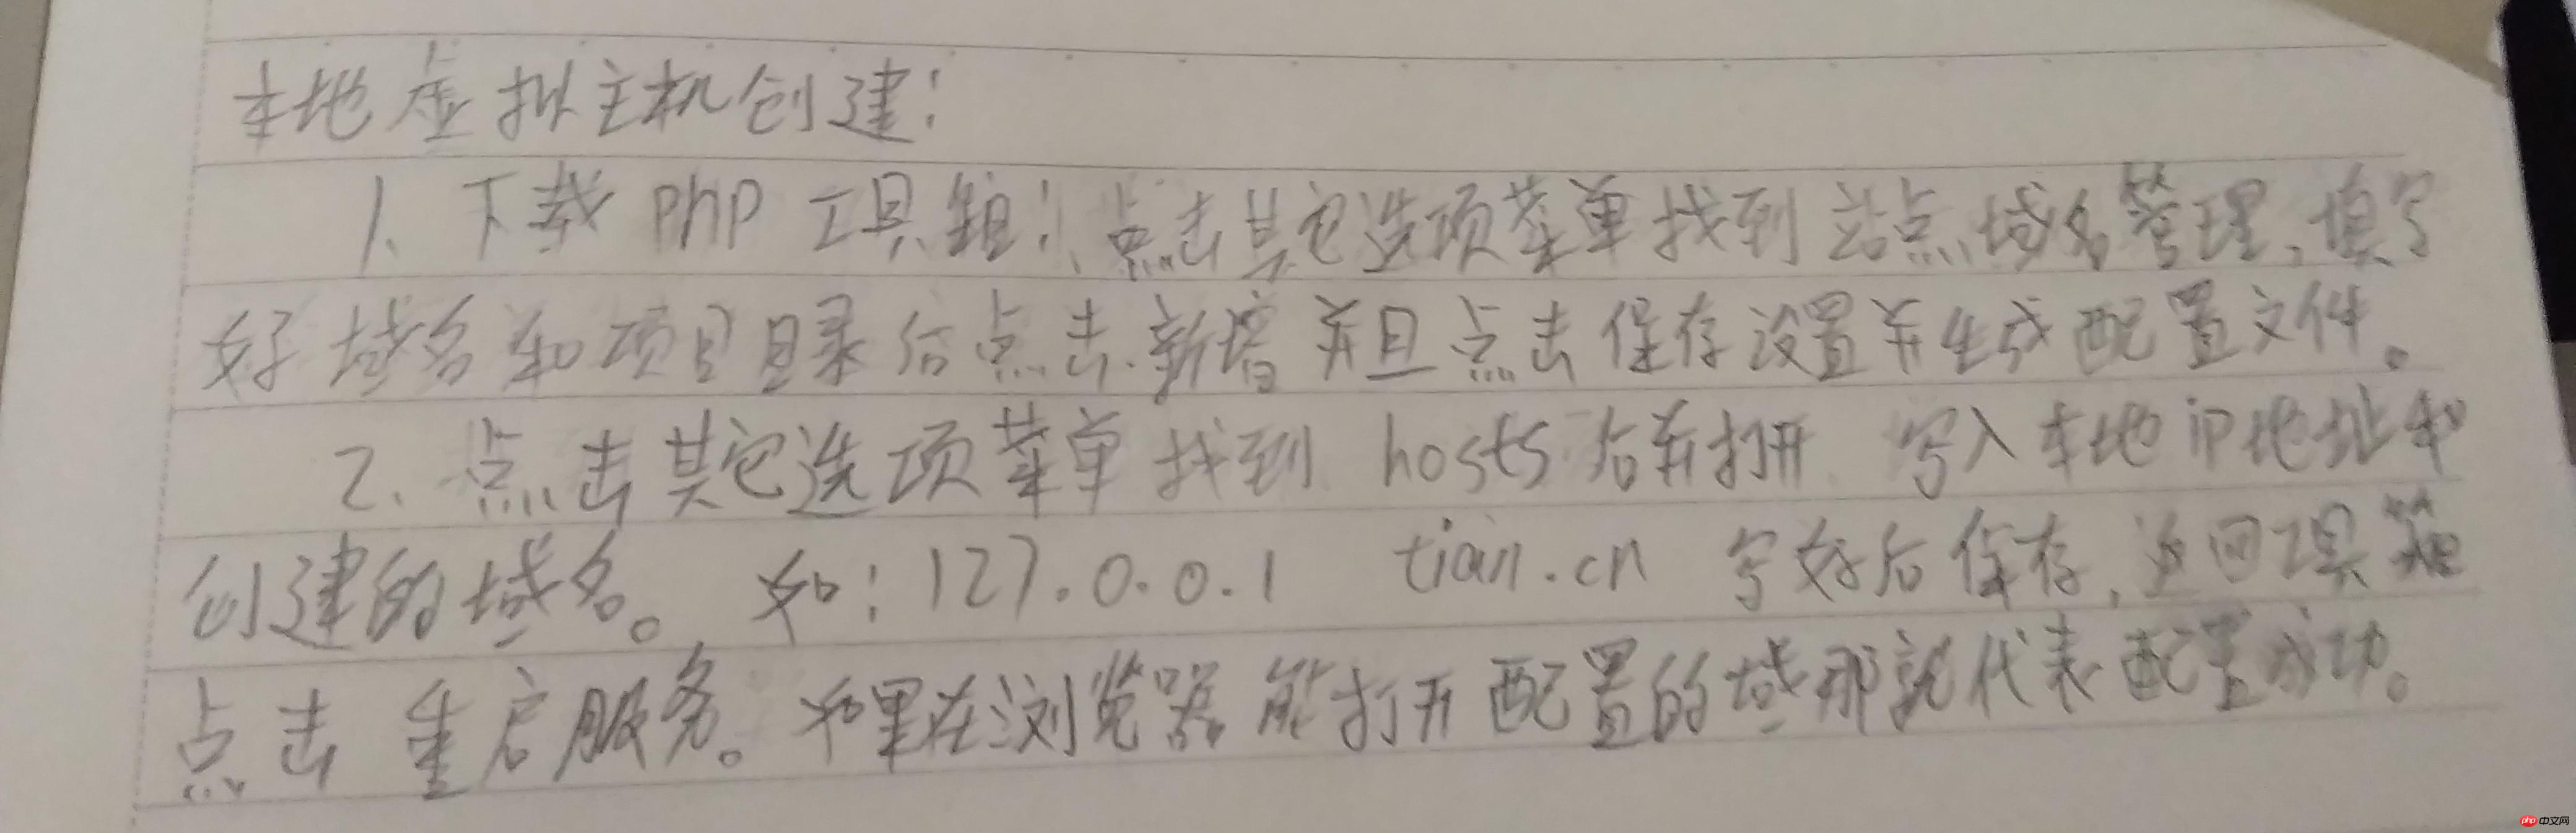 本地虚拟主机创建：
1、下载 php 工具箱！、点击其它选项菜单找到 站点域名管理，填写
好 域名和项目目录后点击新增并且点击保存设置并生成配置文件。
2、点击其它选项菜单找到 hosts 后并打开 写入本地 ip地址和
创建的域名。 如：127.0.0.1 tian.cn 写好后保存，返回工具箱
点击 重启服务。如果在浏览器能打开配置的域那就代表配置成功。
php 中文网